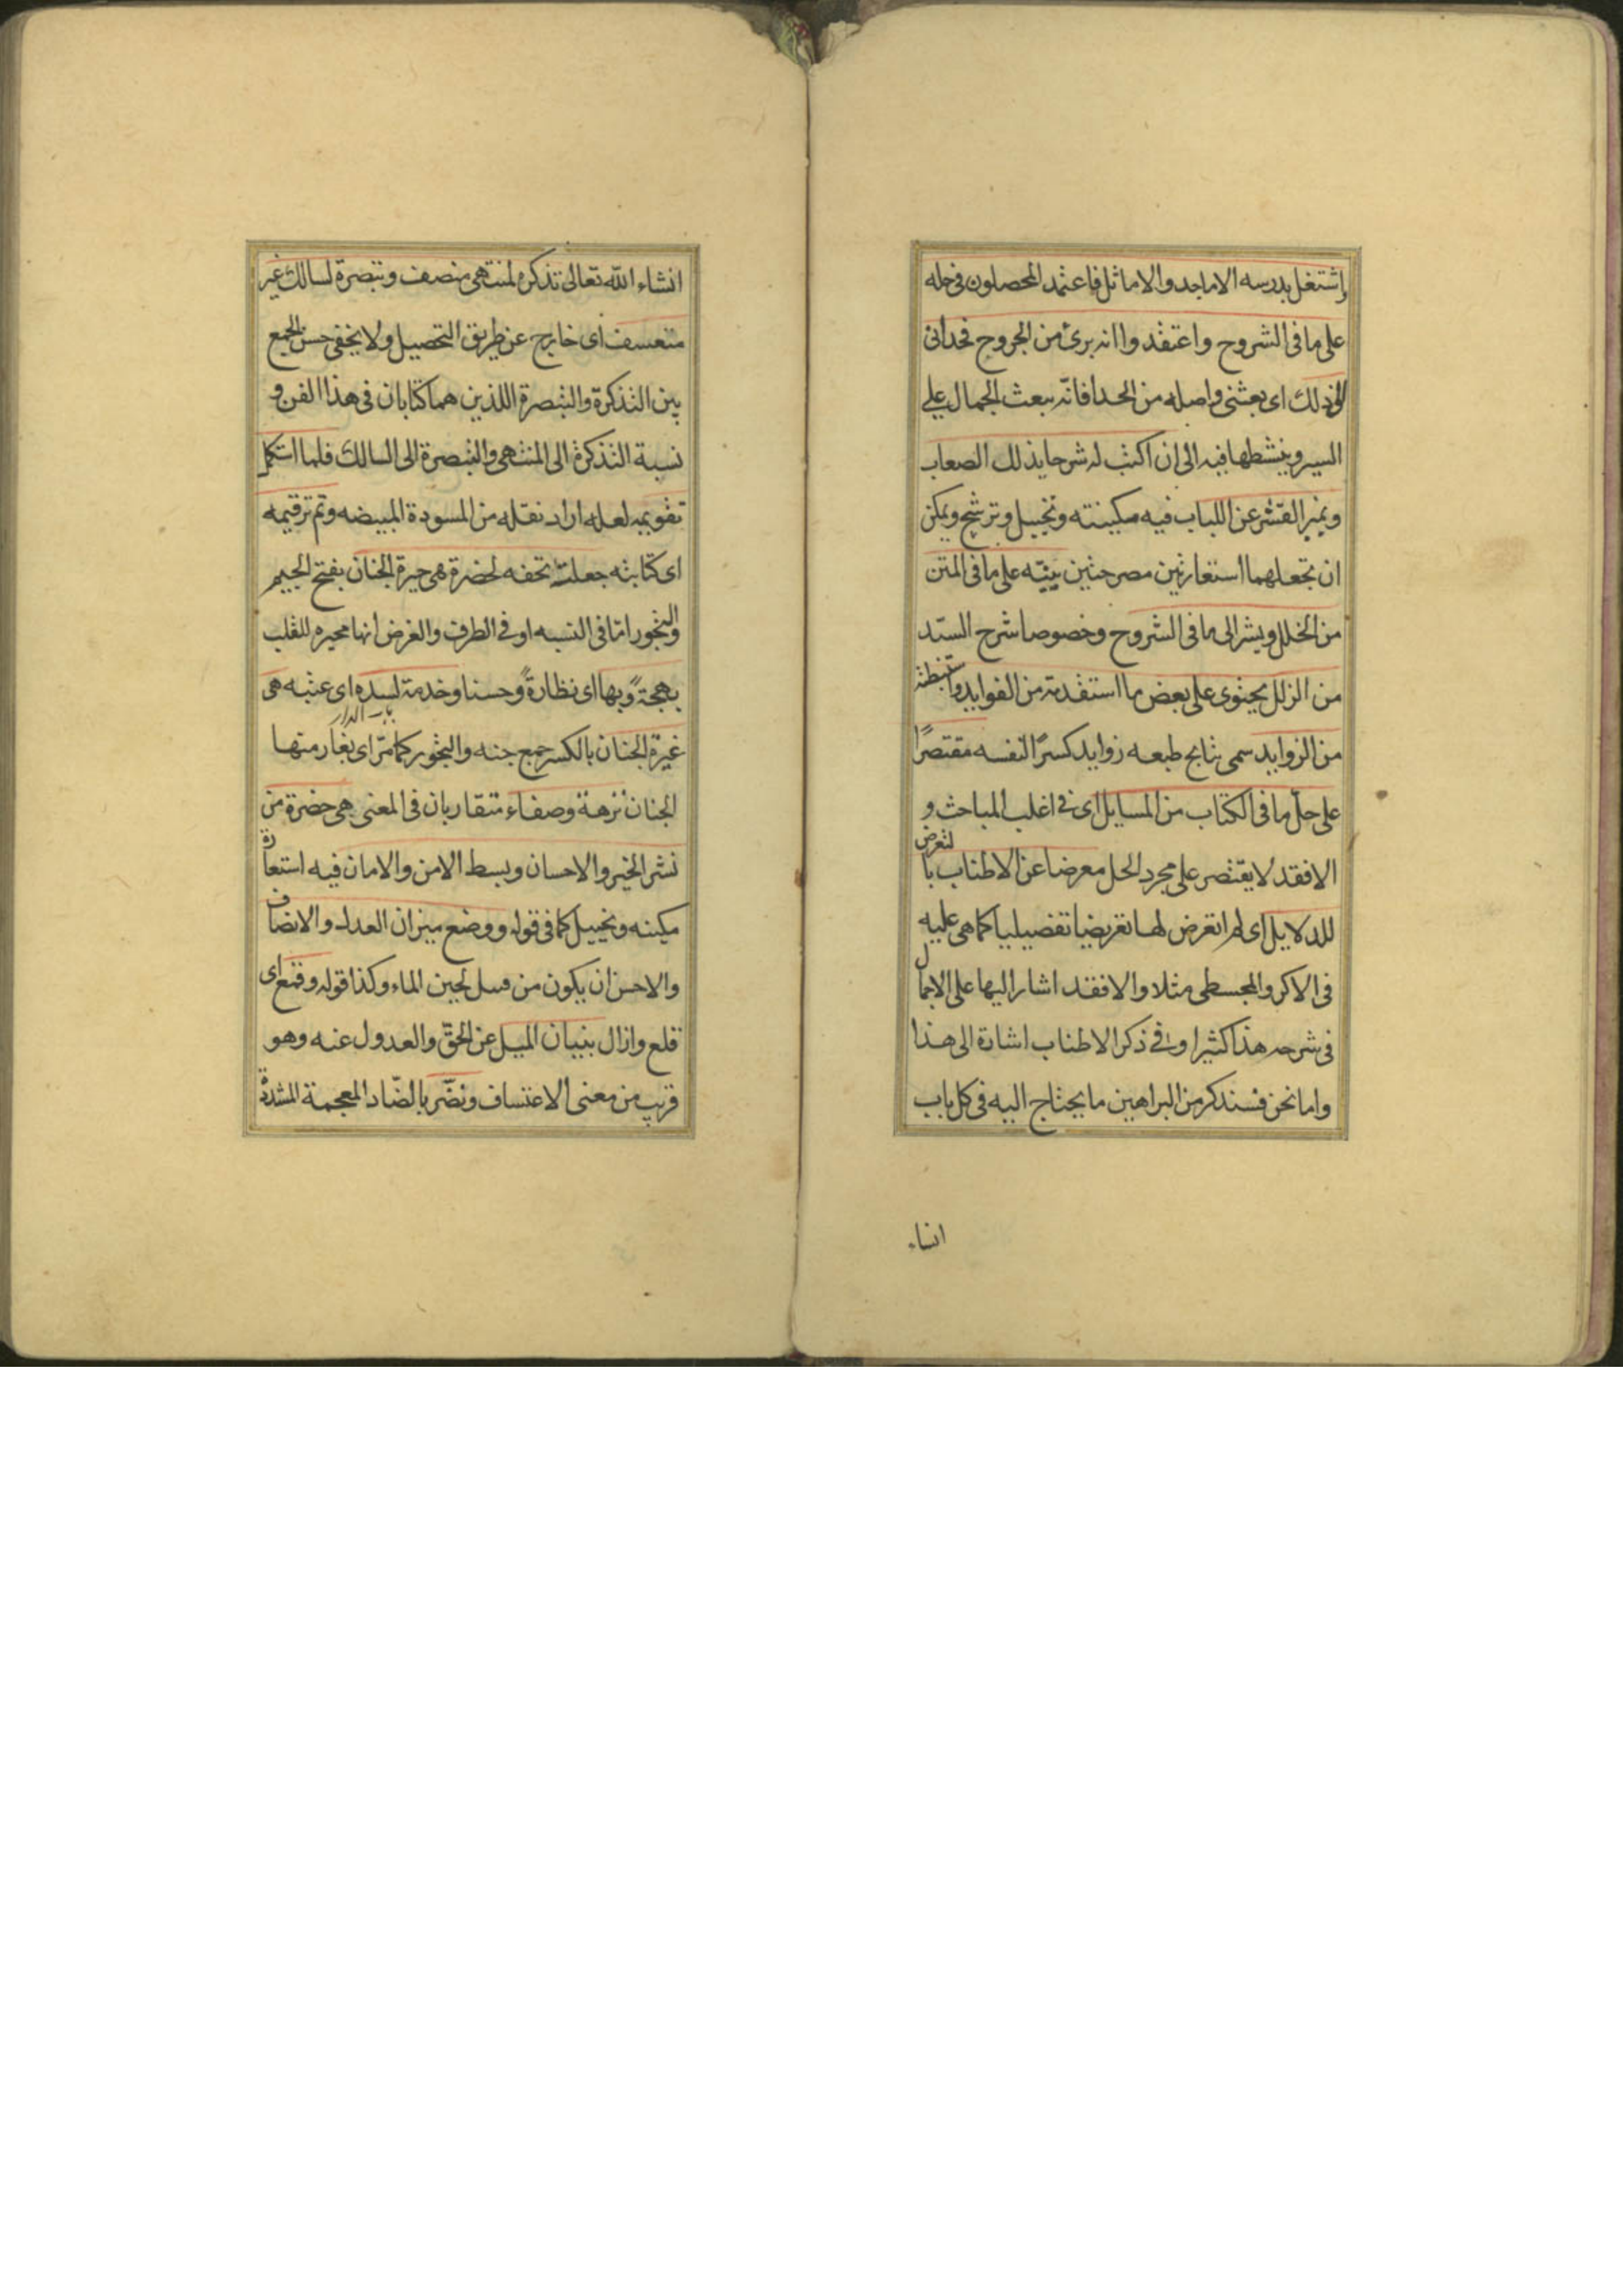 واشتغل بدرسه الاماجد والاماثل فاعتمد المحصلون فى حله
على ما فى الشروح واعتقدوا انه برئ من الجروح فحدانى
الى ذلك اى بعثنى واصله من الحدا فانه يبعث الجمال على
السير وينشطها فيه الى ان اكتب له شرحا يذلل الصعاب
ويميز القشر عن اللباب فيه مكينته وتخييل وترشيح ويمكن
ان تجعلهما استعارتين مصرحتين يبيّنه على ما فى المتن
من الخلل ويشر الى ما فى الشروح وخصوصا شرح السيّد
من الزلل يحتوى على بعض ما استفدته من الفوايد واستنبطته
من الزوايد سمى نتايج طبعه زوايد كسرًا لنفسه مقتصرًا
على حلّ ما فى الكتاب من المسايل اى فى اغلب المباحث و
الا فقد لا يقتصر على مجرد الحل معرضا عن الاطناب بالتعرض
للدلايل اى لم اتعرض لها تعريضا تفصيليا كما هى عليه
فى الاكر والمجسطى مثلا والا فقد اشار اليها على الاجمال
فى شرحه هذا كثيرا وفى ذكر الاطناب اشارة الى هذا
واما نحن فسنذكر من البراهين ما يحتاج اليه فى كل باب
انشاء
انشاء الله تعالى تذكره لمنتهى منصف وتبصرة لسالك غير
متعسف اى خارج عن طريق التحصيل ولا يخفى حسن الجمع
بين التذكرة والتبصرة اللذين هما كتابان فى هذا الفن و
نسبة التذكرة الى المنتهى والتبصرة الى السالك فلما استكمل
تقويمه لعله اراد نقله من المسودة المبيضه وتم ترقيمه
اى كتابته جعلته تحفه لحضرة هى حيرة الجنان بفتح الجيم
والتجوز اما فى النسبه او فى الطرف والغرض انها محيره للقلب
بهجةً وبها اى نظارةً وحسنا وخدمة لسده اى عتبه هى
باب الدار
غيرة الجنان بالكسر جمع جنه والتجوز كما مرّ اى تغار منها
الجنان نزهة وصفاء متقاربان فى المعنى هى حضرة من
نشر الخير والاحسان وبسط الامن والامان فيه استعارة
مكينه وتخييل كما فى قوله ووضع ميزان العدل والانصاف
والاحسن ان يكون من قبيل لجين الماء وكذا قوله وقمع اى
قلع وازال بنيان الميل عن الحقّ والعدول عنه وهو
قريب من معنى الاعتساف ونضّر بالضّاد المعجمة المشددة